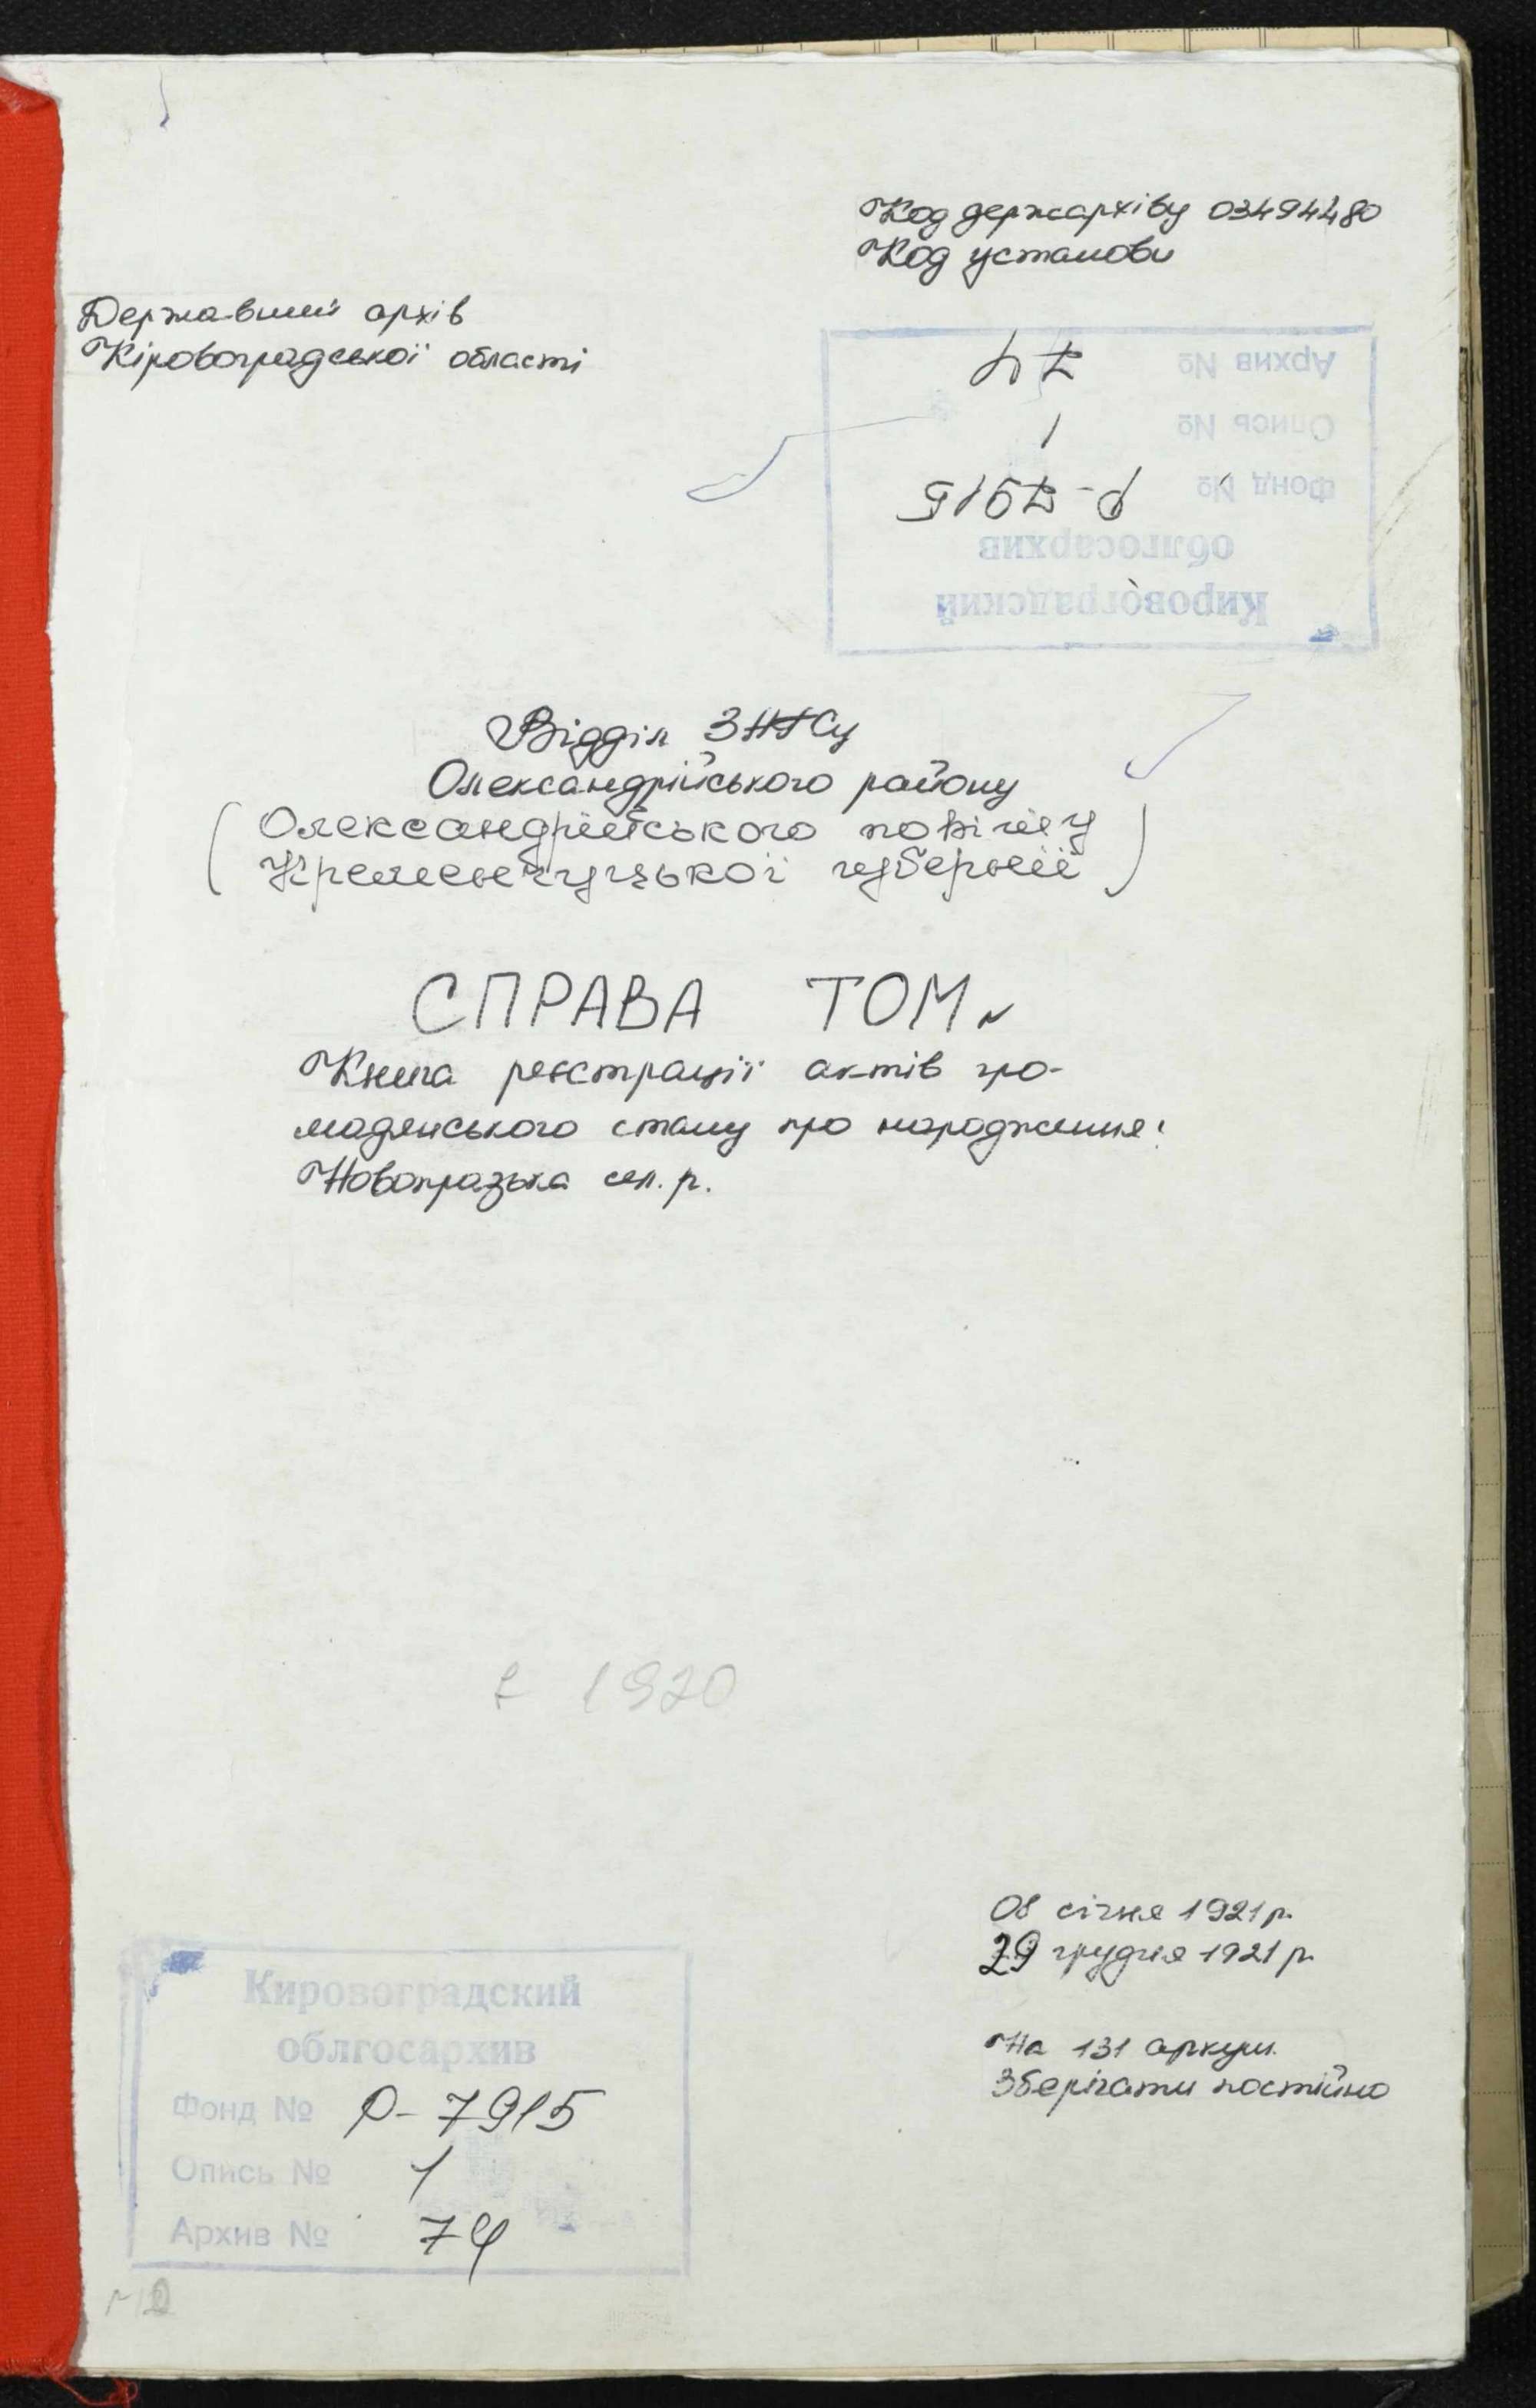 Код держархіву 03494480
Код установи
Державний архів
Кіровоградської області
Архив № 74
Опись № 1
Фонд № Р-7915
облгосархив
Кировоградский
Відділ ЗАГСу
Олександрійського району
(Олександрійського повіту
Кременчуцької губернії)
СПРАВА ТОМ
Книга реєстрації актів гро-
мадянського стану про народження:
Новопразька сел. р.
1920
08 січня 1921 р.
29 грудня 1921 р.
На 131 аркуш.
Зберігати постійно
Кировоградский
облгосархив
Фонд № Р-7915
Опись № 1
Архив № 74